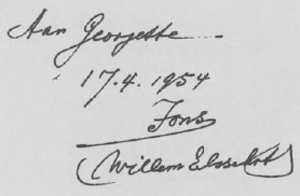 Aan Georgette
17.4.1954
Fons
(Willem Elsschot)